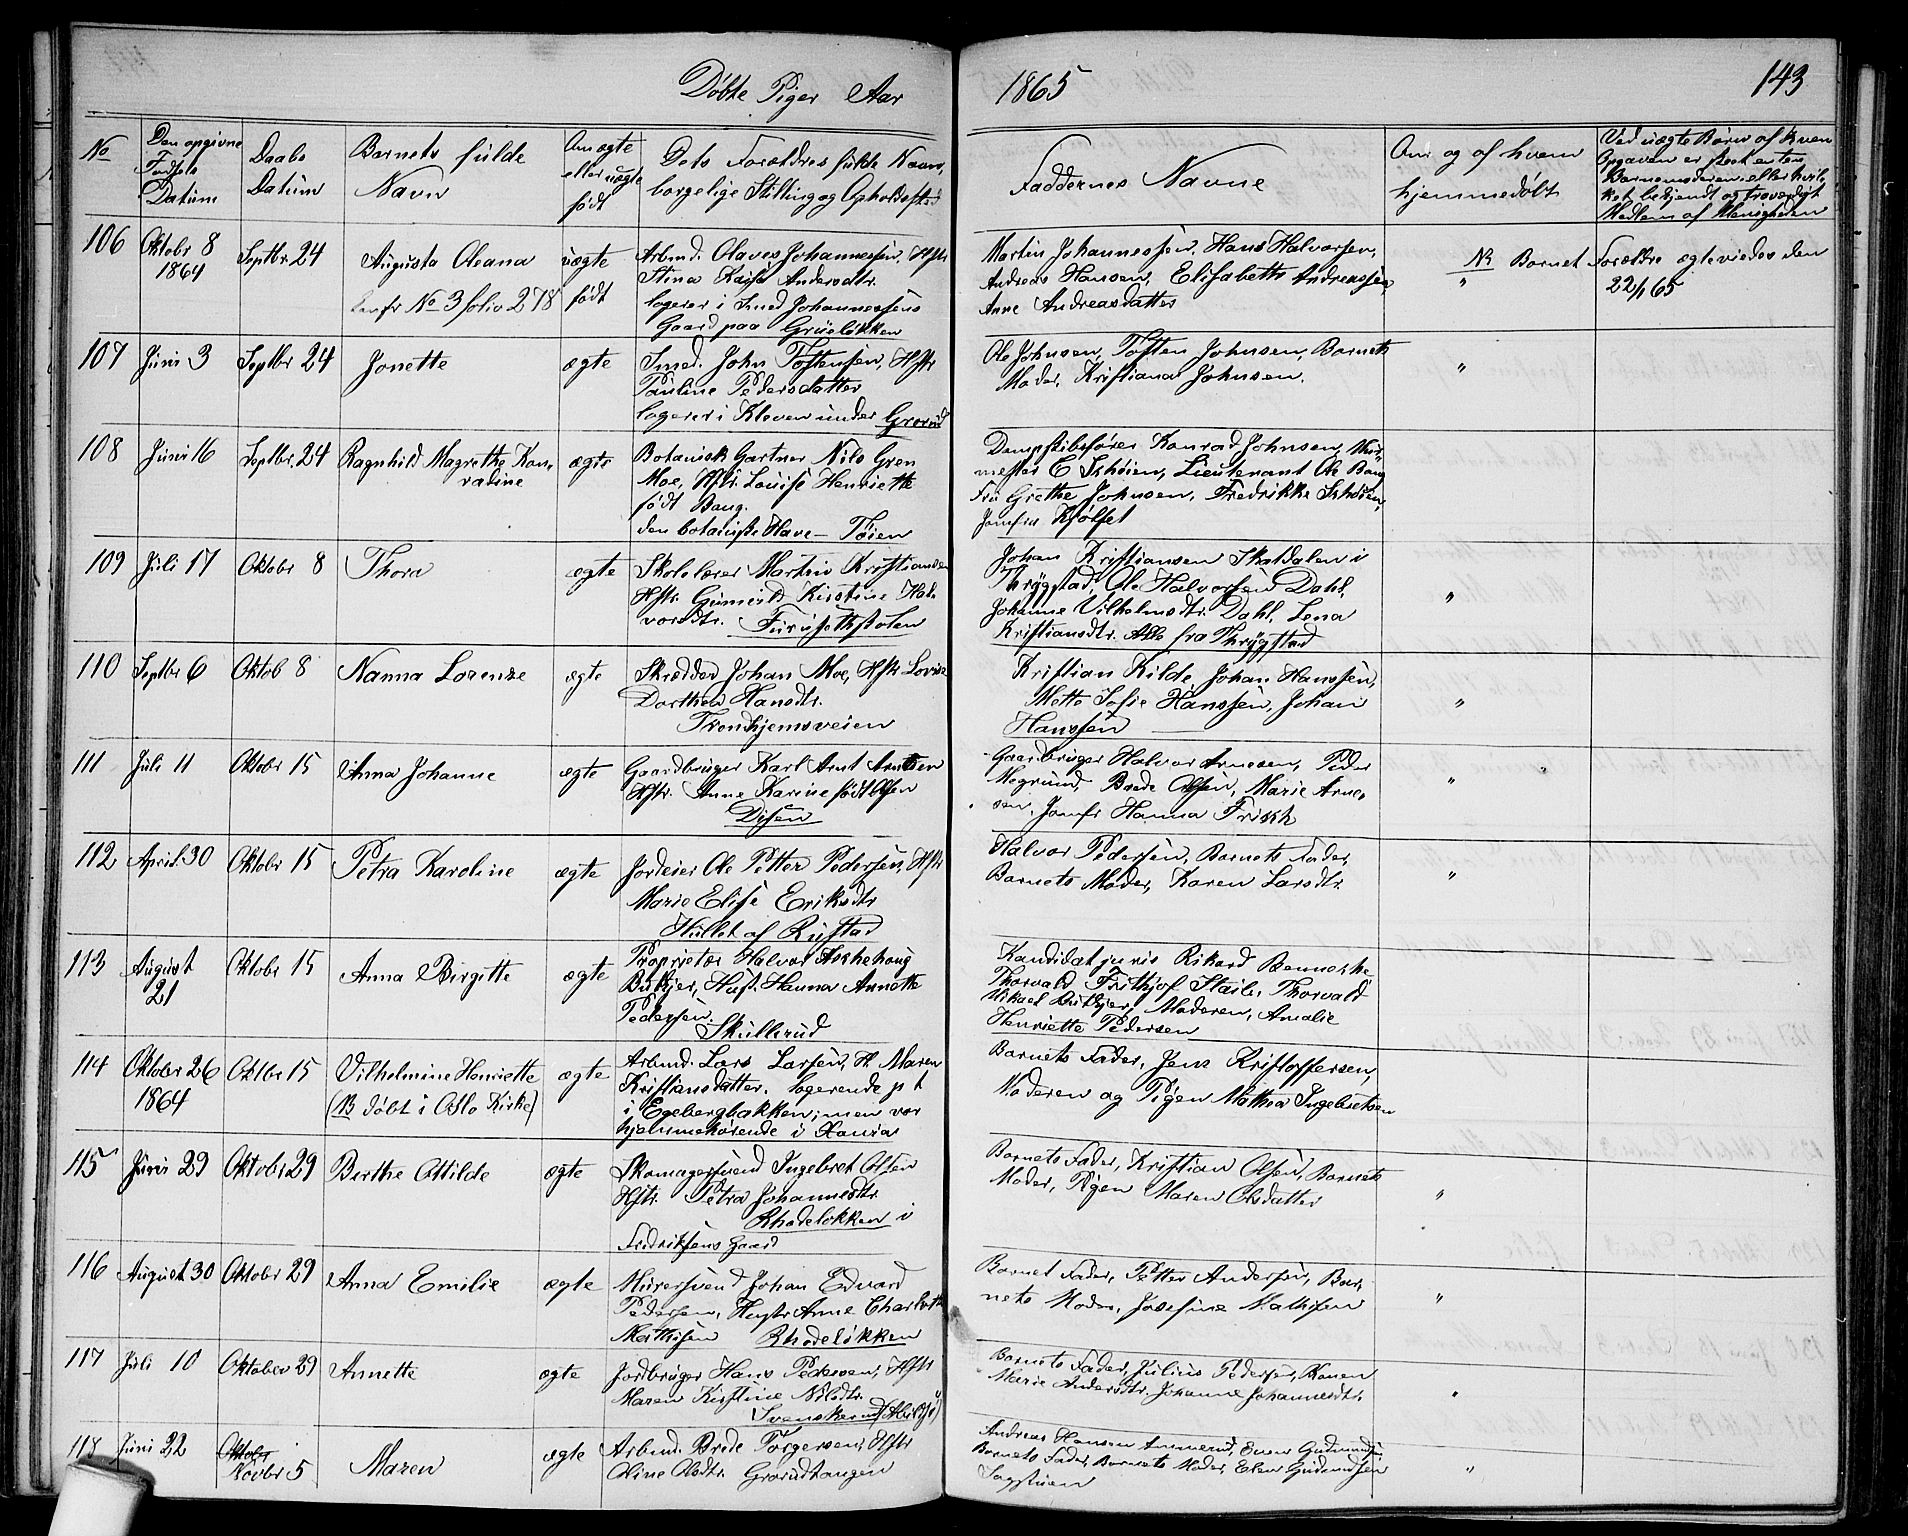 Døbte Piger Aar 1865 143
No
Den opgivne
Fødsels
Datum
Daabs
Datum
Barnets fulde
Navn
Om ægte
eller uægte
født
Dets Forældres fulde Navn,
borgelige Stilling og Opholdssted
Faddernes Navne
Om og af hvem
hjemmedøbt
Ved uægte Børn af hvem
Opgaven er skeet enten
Barnemoderen eller hvil-
ket bekjendt og troværdigt
Medlem af Menigheden
106 Oktobr 8
1864
Septbr. 24
Augusta Oleana
confr No 3 folio 278
uægte
født
Arbmd. Olaves Johannessen, Hstr
Stina Kaisa Andersdtr.
logerer i Smed Johannessens
Gaard paa Grüneløkken
Martin Johannessen, Hans Halvorsen,
Andreas Hansen, Elisabeth Andreassen,
Anne Andreasdatter
"
NB Barnet Forældre ægteviedes den
22/1 65
107 Juni 3 Septbr 24 Jonette ægte
Smed. John Tostensen, Hstr
Pauline Pedersdatter
logerer i Kleven under Grorud
Ole Johnsen, Tosten Johnsen, Barnets
Moder, Kristiana Johnsen.
"
108 Juni 16 Septbr. 24 Ragnhild Magrethe Kon-
radine
ægte
Botanisk Gartner Nils Gren
Moe, Hstr. Louise Henriette
født Bang.
den botaniske Have - Tøien
Dampskibsfører Konrad Johnsen,
mester C Schøien, Lieutenant Ole Bang
Fru Grethe Johnsen, Fredrikke Schøien,
Jomfru Kjølset
109 Juli 17 Oktobr 8 Thora ægte
Skolelærer Martin Kristiansen
Hstr. Gunnild Kirstine Hal-
vorsdtr. Furusethskolen
Johan Kristiansen Skatdalen i
Thrygstad, Ole Halvorsen Dahl,
Johanne Vilhelmsdtr. Dahl, Lena
Kristiansdtr. Alle fra Thrygstad
"
110 Septbr 6 Oktob 8 Nanna Lorenze ægte
Skrædder Johan Moe, Hstr Lovise
Dorthea Hansdtr.
Trondhjemsveien
Kristian Kilde, Johan Hanssen,
Mette Sofie Hanssen, Johan
Hanssen
"
111 Juli 11 Oktobr 15 Anna Johanne ægte
Gaardbruger Karl Arnt Arntsen
Hstr. Anne Karine født Olsen
Disen
Gaardbruger Halvor Arnesen, Peder
Megrund, Brede Olsen, Marie Arne-
sen, Jomfr Hanna Frikh
"
112 April 30 Oktobr 15 Petra Karoline ægte
Jordeier Ole Petter Pedersen, Hstr
Marie Elise Eriksdtr
Hullet af Rustad
Halvor Pedersen, Barnets Fader,
Barnets Moder, Karen Larsdtr.
"
113 August
21
Oktobr 15 Anna Birgitte ægte
Proprietær Halvor Aschehoug
Butkjer, Hust. Hanna Annette
Pedersen.
Skullerud
Kandidat juris Rikard Benneche
Thorvald Frithjof Staib, Thorvald
Mikael Butkjer, Moderen, Amalie
Henriette Pedersen
114 Oktober 26
1864
Oktbr 15
Vilhelmine Henriette
(NB døbt i Oslo Kirke)
ægte
Arbmd. Lars Larsen, H Maren
Kristiansdatter. logerende p t
i Egebergbakken; men var
hjemmehørende i Xania
Barnets Fader, Jens Kristoffersen,
Moderen og Pigen Mathea Ingebretsen
115 Juni 29 Oktobr 29 Berthe Ottilde ægte
Skomagersvend Ingebret Olsen
Hstr. Petra Johannesdtr.
Rhodeløkken i
Fredriksens Gaard
Barnets Fader, Kristian Olsen, Barnets
Moder, Pigen Maren Olsdatter
"
116 August 30 Oktobr 29 Anna Emilie ægte
Murersvend Johan Edvard
Pedersen, Hustr Anne Charlotte
Mathisen Rhodeløkken
Barnet Fader, Petter Andersen, Bar-
nets Moder, Josefine Mathisen
"
117 Juli 10 Oktober 29 Annette ægte
Jordbruger Hans Pedersen, Hstr
Maren Kirstine Nilsdtr.
Svenskerud (Abildsø)
Barnets Fader, Julius Pedersen, Karen
Marie Andersdtr. Johanne Johannesdtr.
"
118 Juni 22 Oktobr
Novbr 5
Maren ægte
Arbmd. Brede Torgersen, Hstr
Oline Olsdtr. Grorudtangen
Andreas Hansen Ammerud, Even Gudmundsen
Barnets Fader, Barnets Moder, Ellen Gudmundsen
Sagstuen
"